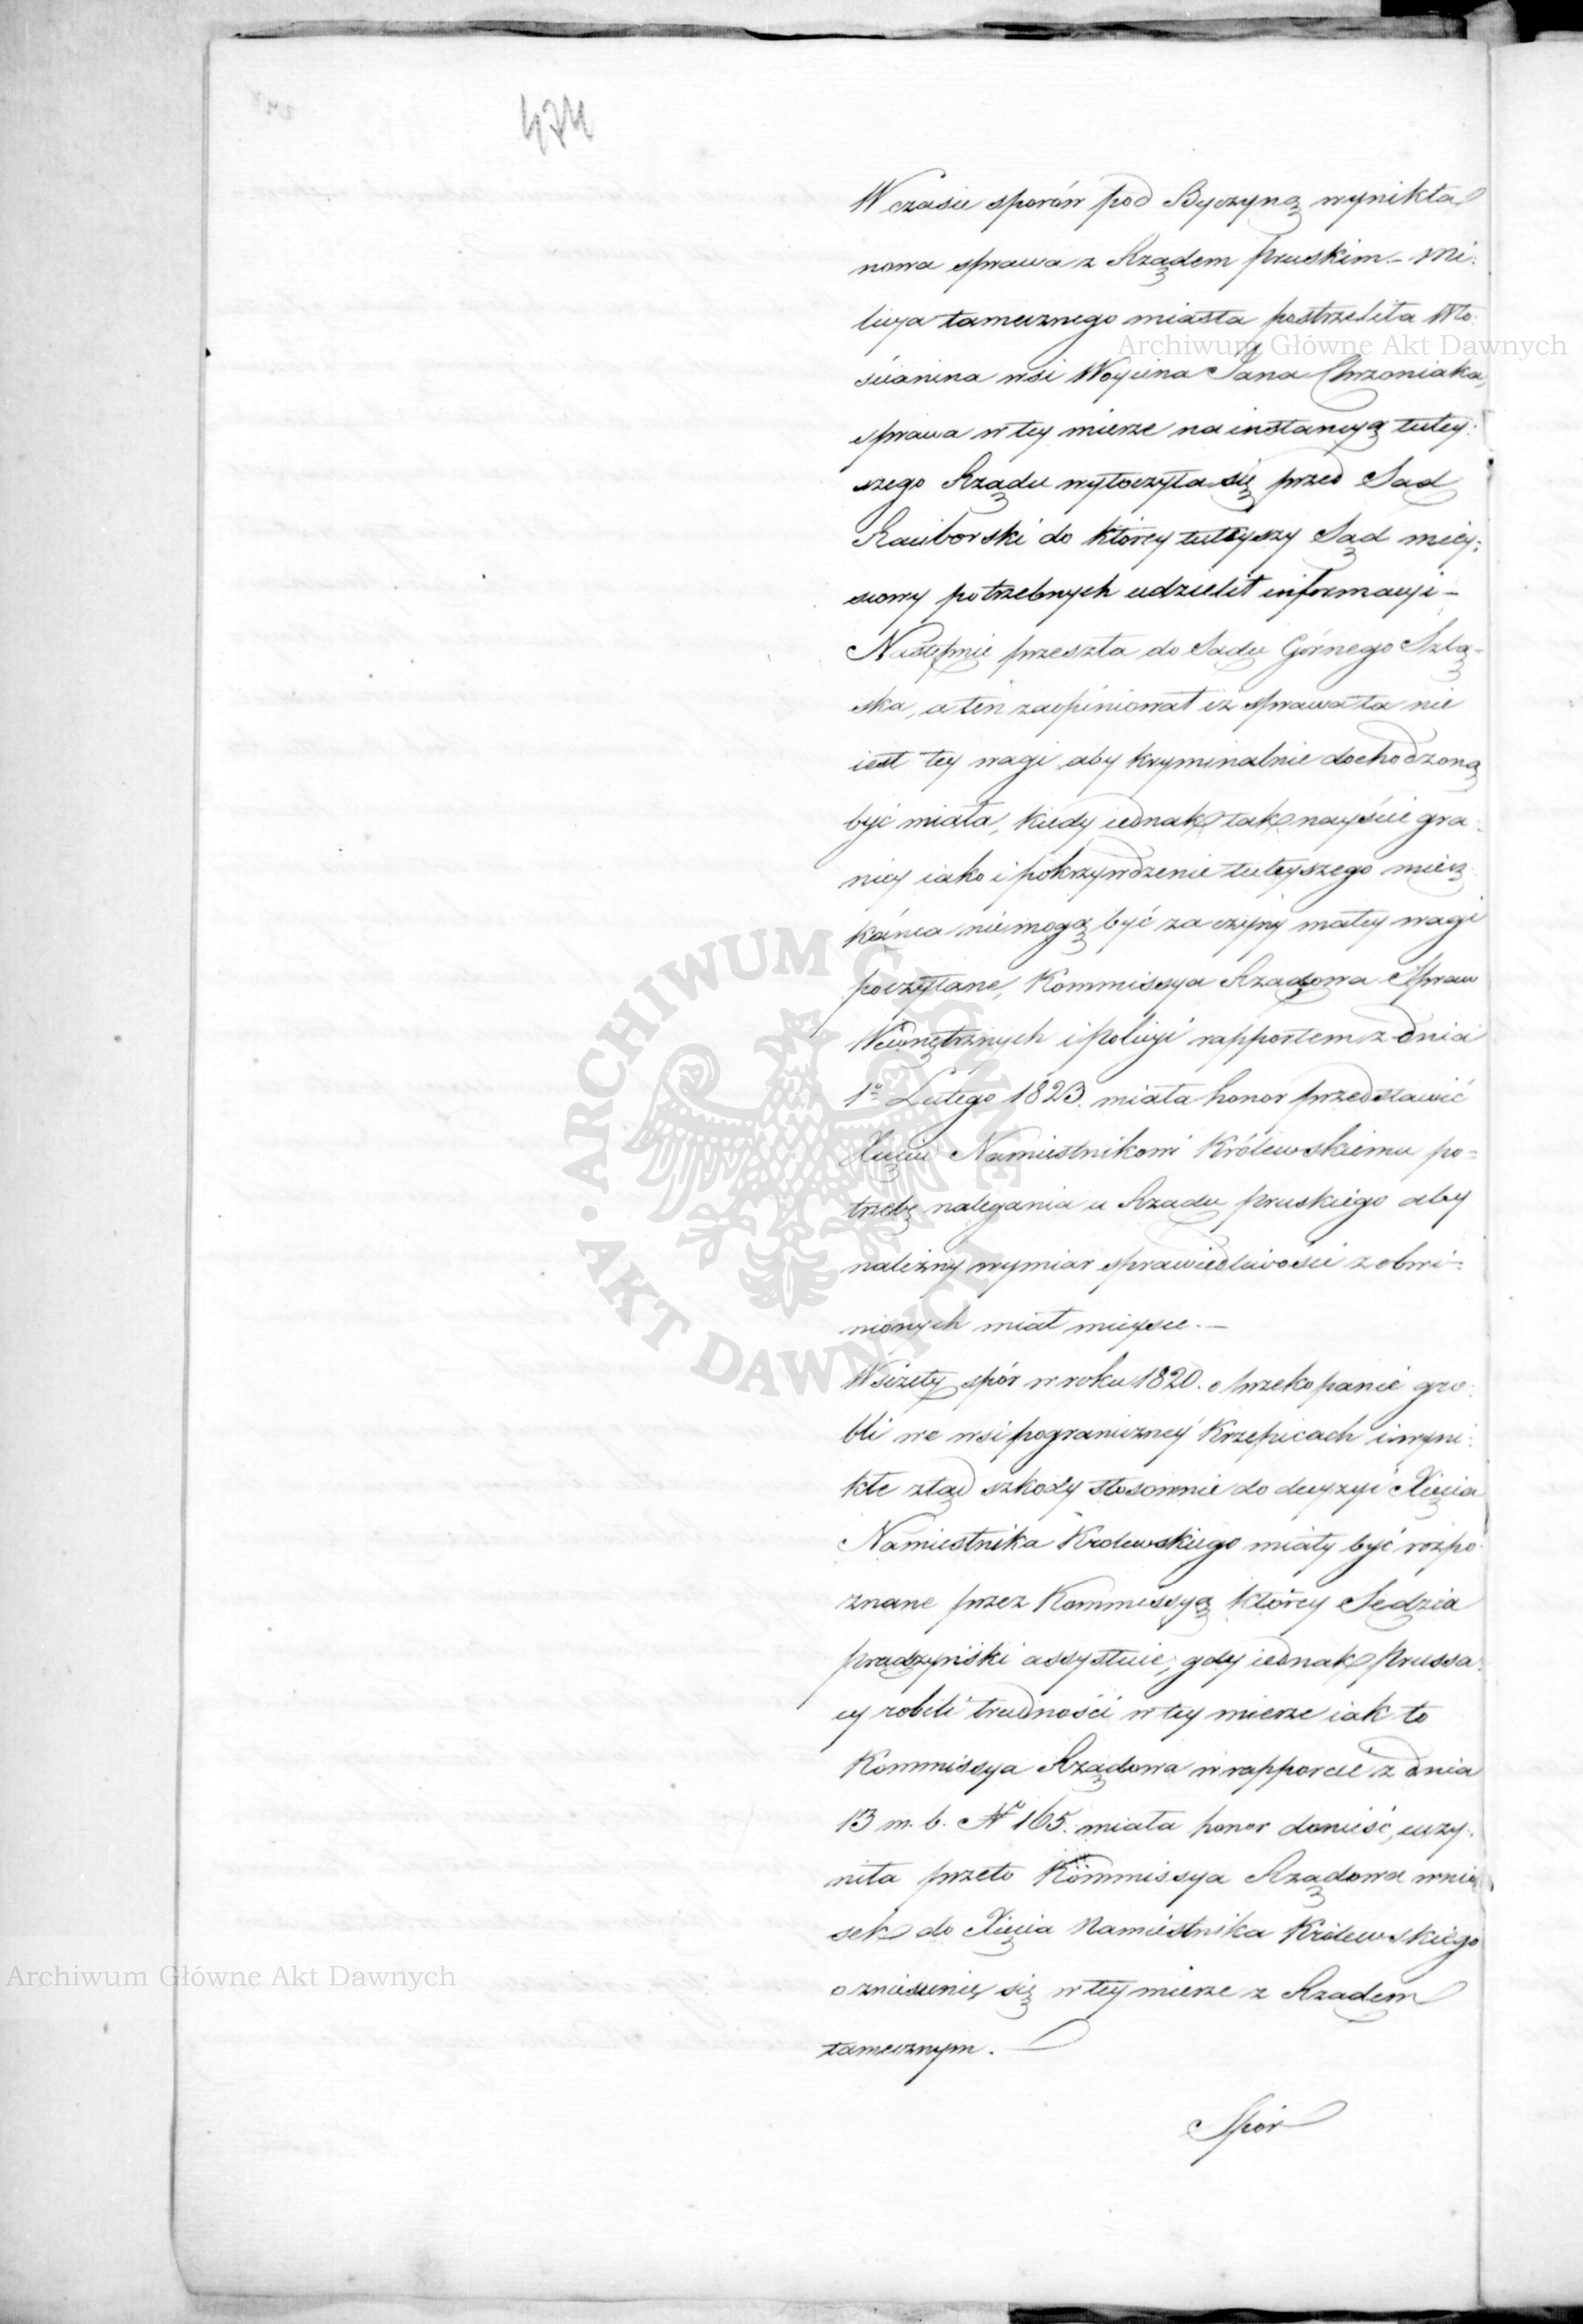 474
W czasie sporów pod Byczyną wynikła
nowa sprawa z Rządem Pruskim. – Mi:
licya tamecznego miasta postrzeliła Wło:
Archiwum Główne Akt Dawnych
ścianina wsi Woycina Jana Chrzoniaka,
sprawa w tey mierze na instancyą tutey:
szego Rządu wytoczyła się przed Sąd
Raciborski do którey tuteyszy Sąd miey:
scowy potrzebnych udzielił informacyi –
Następnie przeszła do Sądu Górnego Szlą-
ska, a ten zaopiniował iż sprawa ta nie
iest tey wagi aby kryminalnie dochodzoną
być miała, kiedy iednak tak nayście gra:
nicy iako i pokrzywdzenie tuteyszego miesz
kańca nie mogą być za czyny małey wagi
poczytane, Kommissya Rządowa Spraw
Wewnętrznych i Policyi rapportem z dnia
1º Lutego 1823. miała honor przedstawić
Xięciu Namiestnikowi Królewskiemu po=
trzebę nalegania u Rządu Pruskiego aby
należny wymiar sprawiedliwości z obwi=
nionych miał mieysce. –
Wszczęty spór w roku 1820. o przekopanie gro:
bli we wsi pograniczney Krzepicach i wyni:
kłe ztąd szkody stosownie do decyzyi Xięcia
Namiestnika Krolewskiego miały być rozpo:
znane przez Kommissyą którey Sędzia
Prądzyński assystuie, gdy iednak Prussa:
cy robili trudności w tey mierze iak to
Kommissya Rządowa w rapporcie z dnia
13 m. b. Nº 165. miała honor donieść, uczy:
niła przeto Kommissya Rządowa wnio
sek do Xięcia Namiestnika Królewskiego
o zniesienie się w tey mierze z Rządem
tamecznym.
Spór
ARCHIWUM GŁÓWNE
AKT DAWNYCH
Archiwum Główne Akt Dawnych